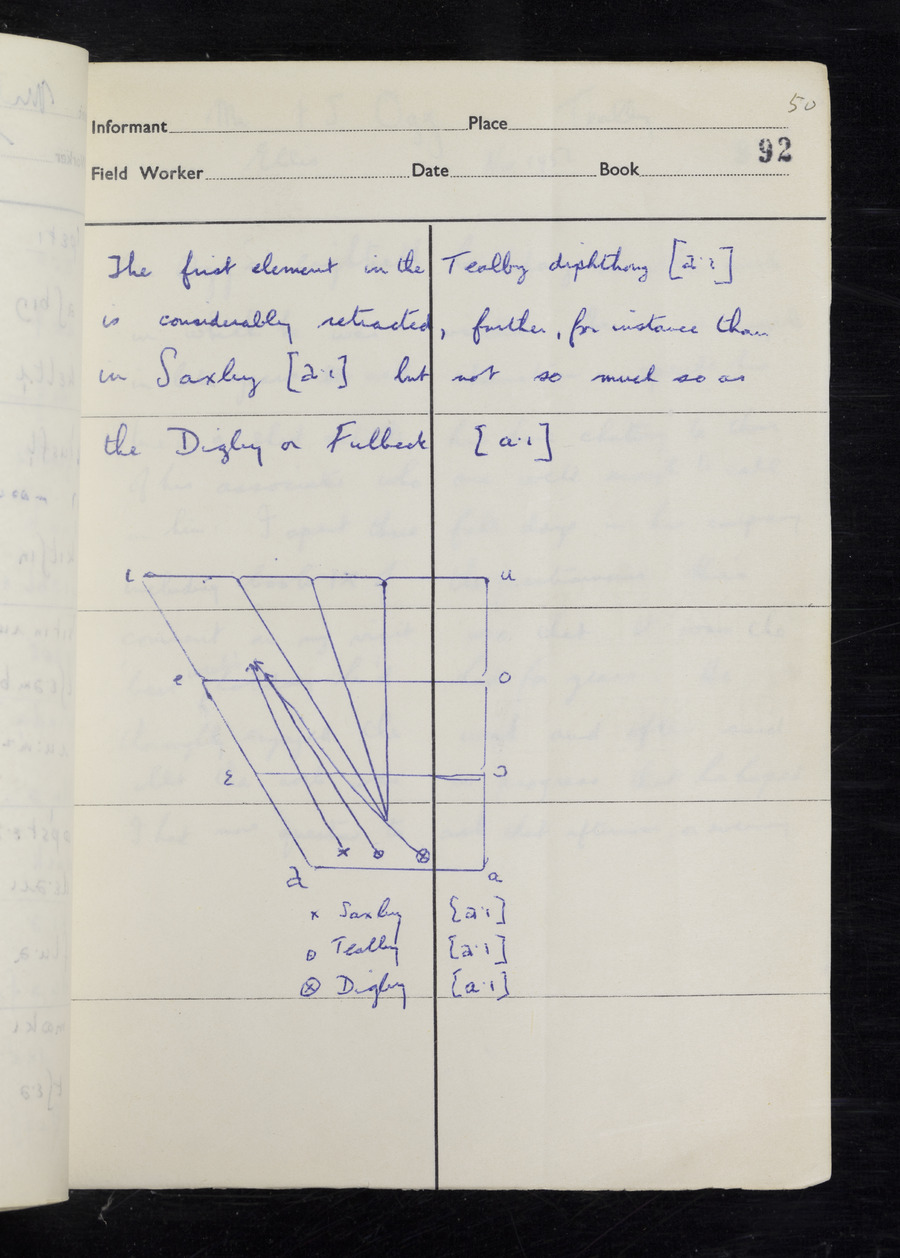 50
Informant Place
92
Field Worker Date Book
The first element in the Tealby diphthong [a·ɪ]
is considerably retracted, further, for instance than
in Saxby [a·ɪ] but not so much so as
the Digby or Fulbeck [ɑ·ɪ]
i u
e o
ɛ ɔ
a ɑ
x Saxby [a·ɪ]
o Tealby [a·ɪ]
⊗ Digby [ɑ·ɪ]